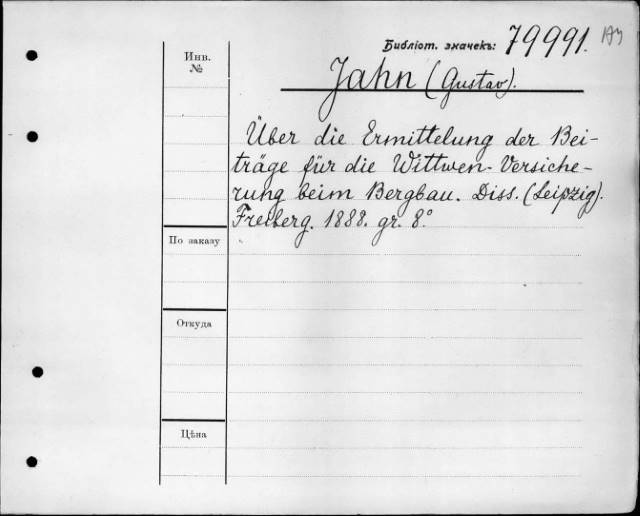 Библіот. значекъ: 79991.
Инв.
№
Jahn (Gustav).
Über die Ermittelung der Bei-
träge für die Wittwen-Versiche-
rung beim Bergbau. Diss. (Leipzig).
Freiberg. 1888. gr. 8°
По заказу
Откуда
Цѣна